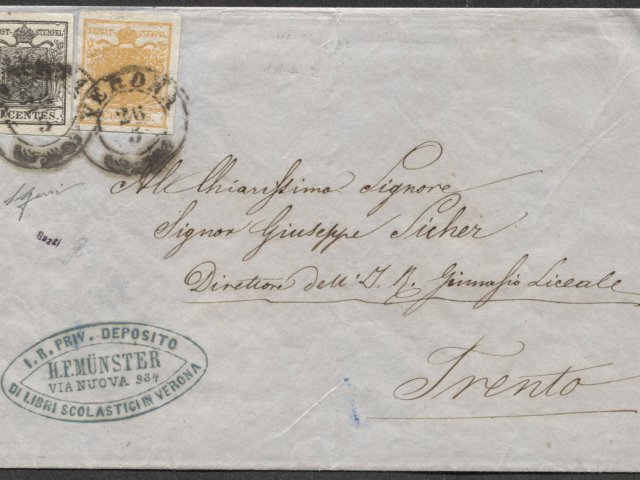 POST-STEMPEL
POST-STEMPEL
CENTES.
VERONA
26
All Chiarissimo Signore
Signor Giuseppe Sicher
Direttore dell' I. R. Ginnasio Liceale
Trento
Bazzi
I. R. PRIV. DEPOSITO
H. F. MÜNSTER
VIA NUOVA 934
DI LIBRI SCOLASTICI IN VERONA